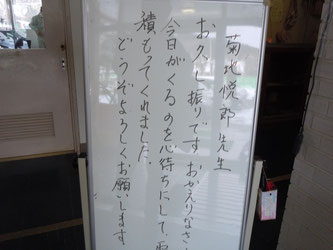 菊地悦郎先生
お久し振りです おかえりなさい
今日がくるのを心待ちにして、雪
積もってくれました。
どうぞよろしくお願いします。